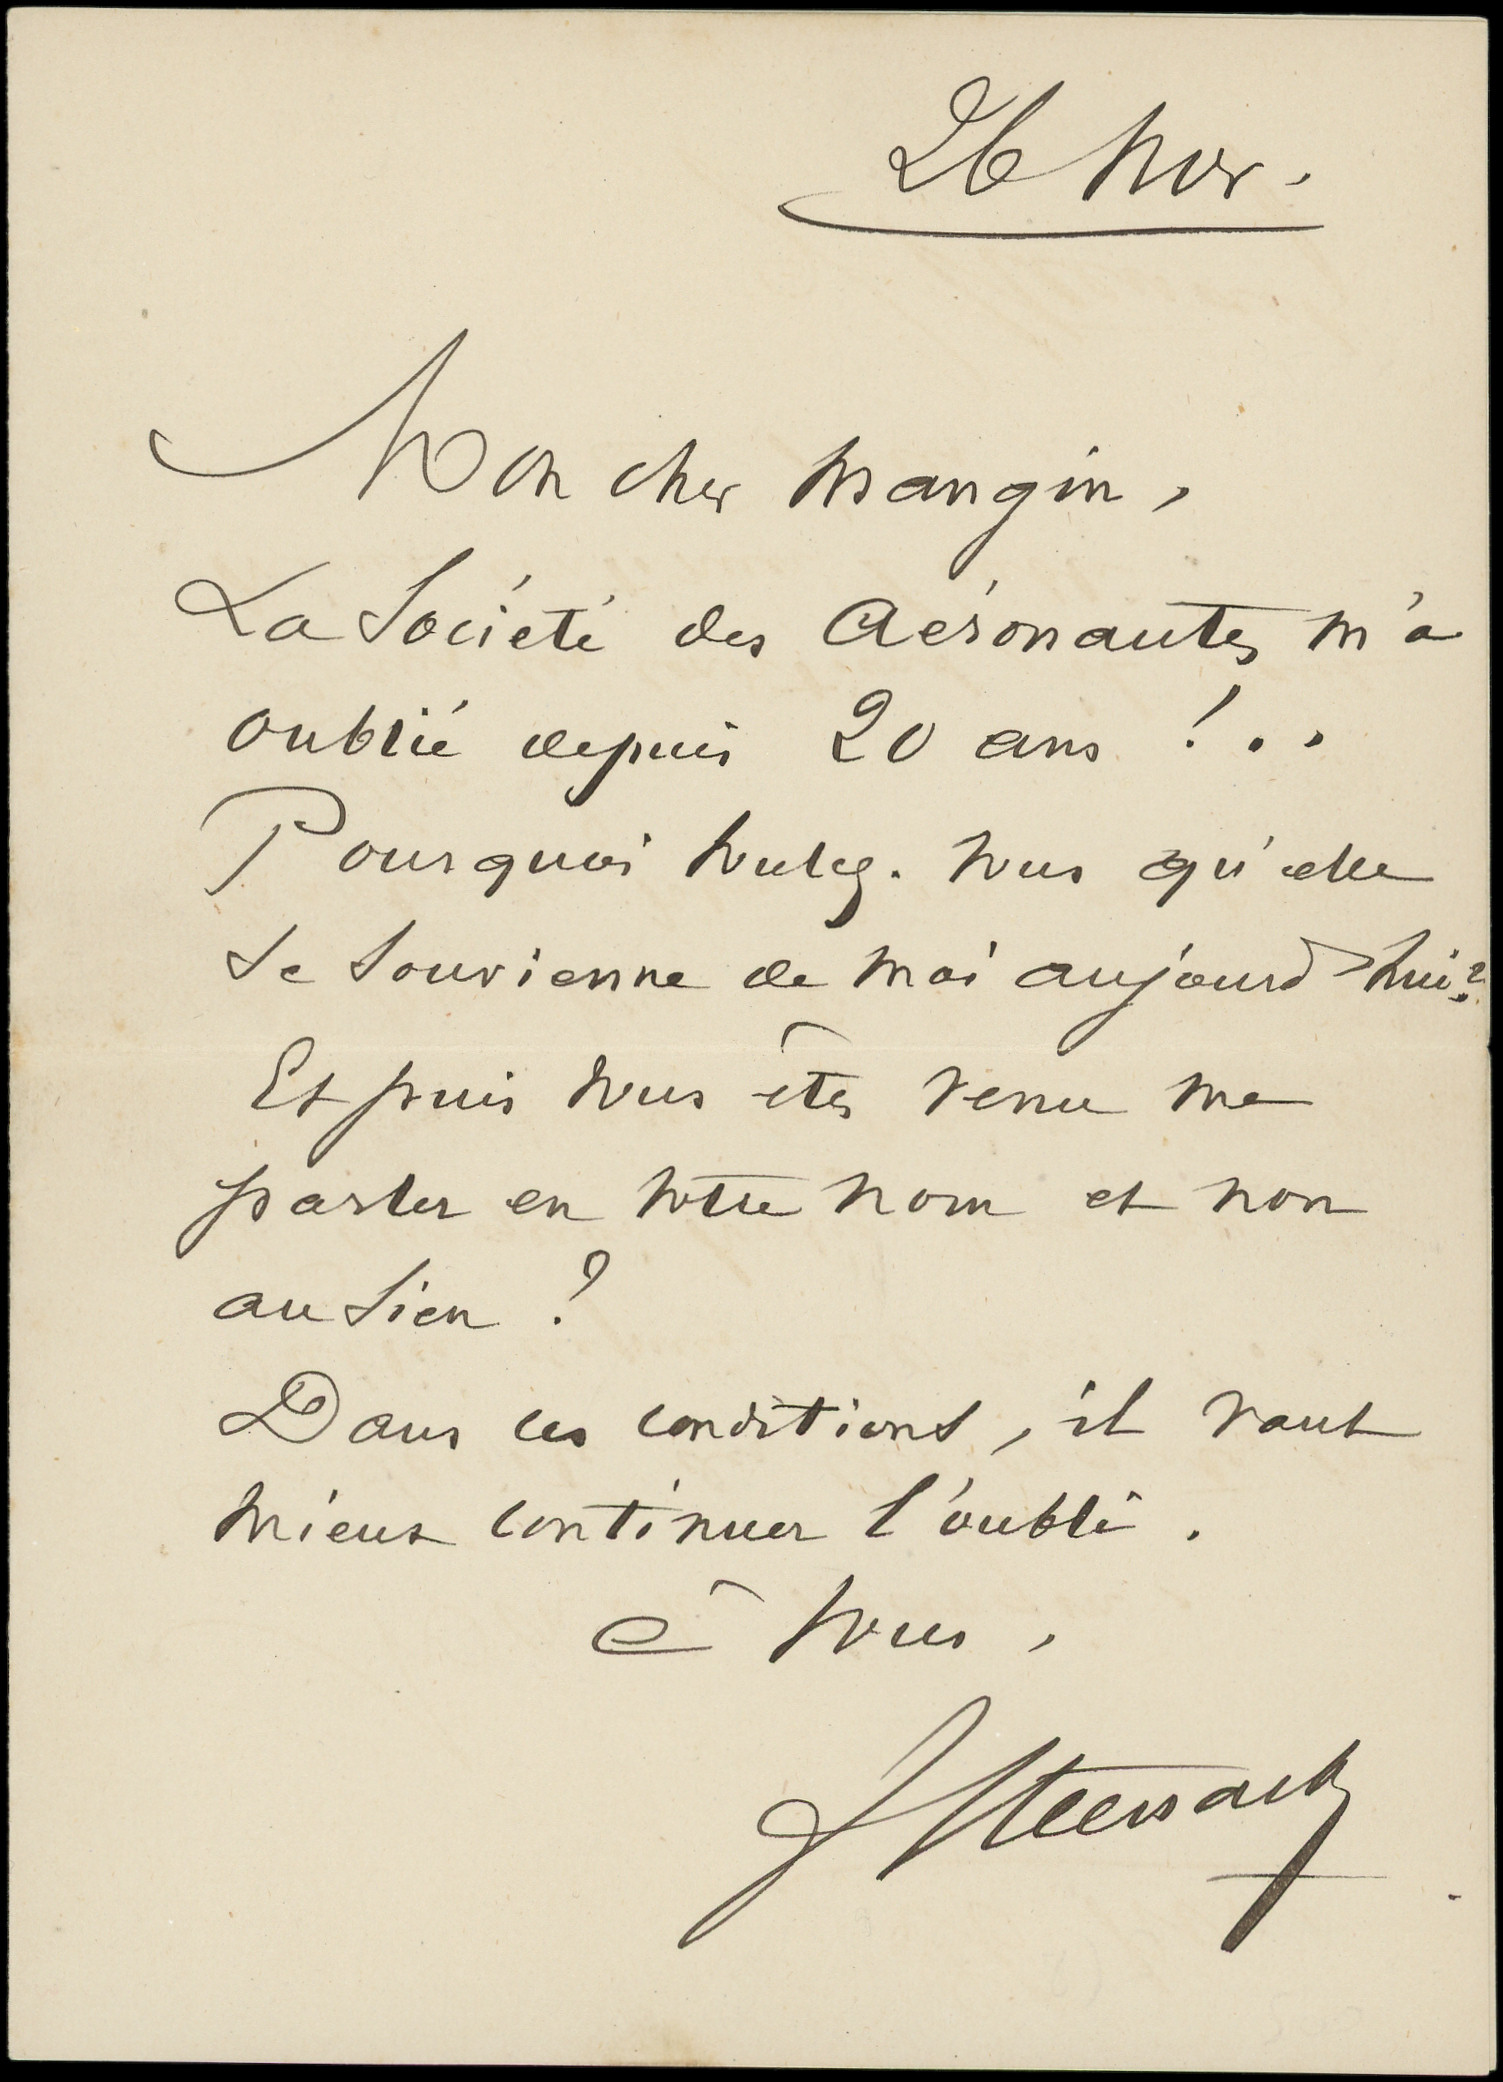 26 Nov.
Mon cher Mangin,
La Société des Aéronautes m'a
oublié depuis 20 ans !..
Pourquoi voulez-vous qu'elle
se souvienne de moi aujourd'hui?
Et puis vous êtes venu me
parler en votre nom et non
au sien ?
Dans ces conditions, il vaut
mieux continuer l'oubli.
à vous,
J Steenackers